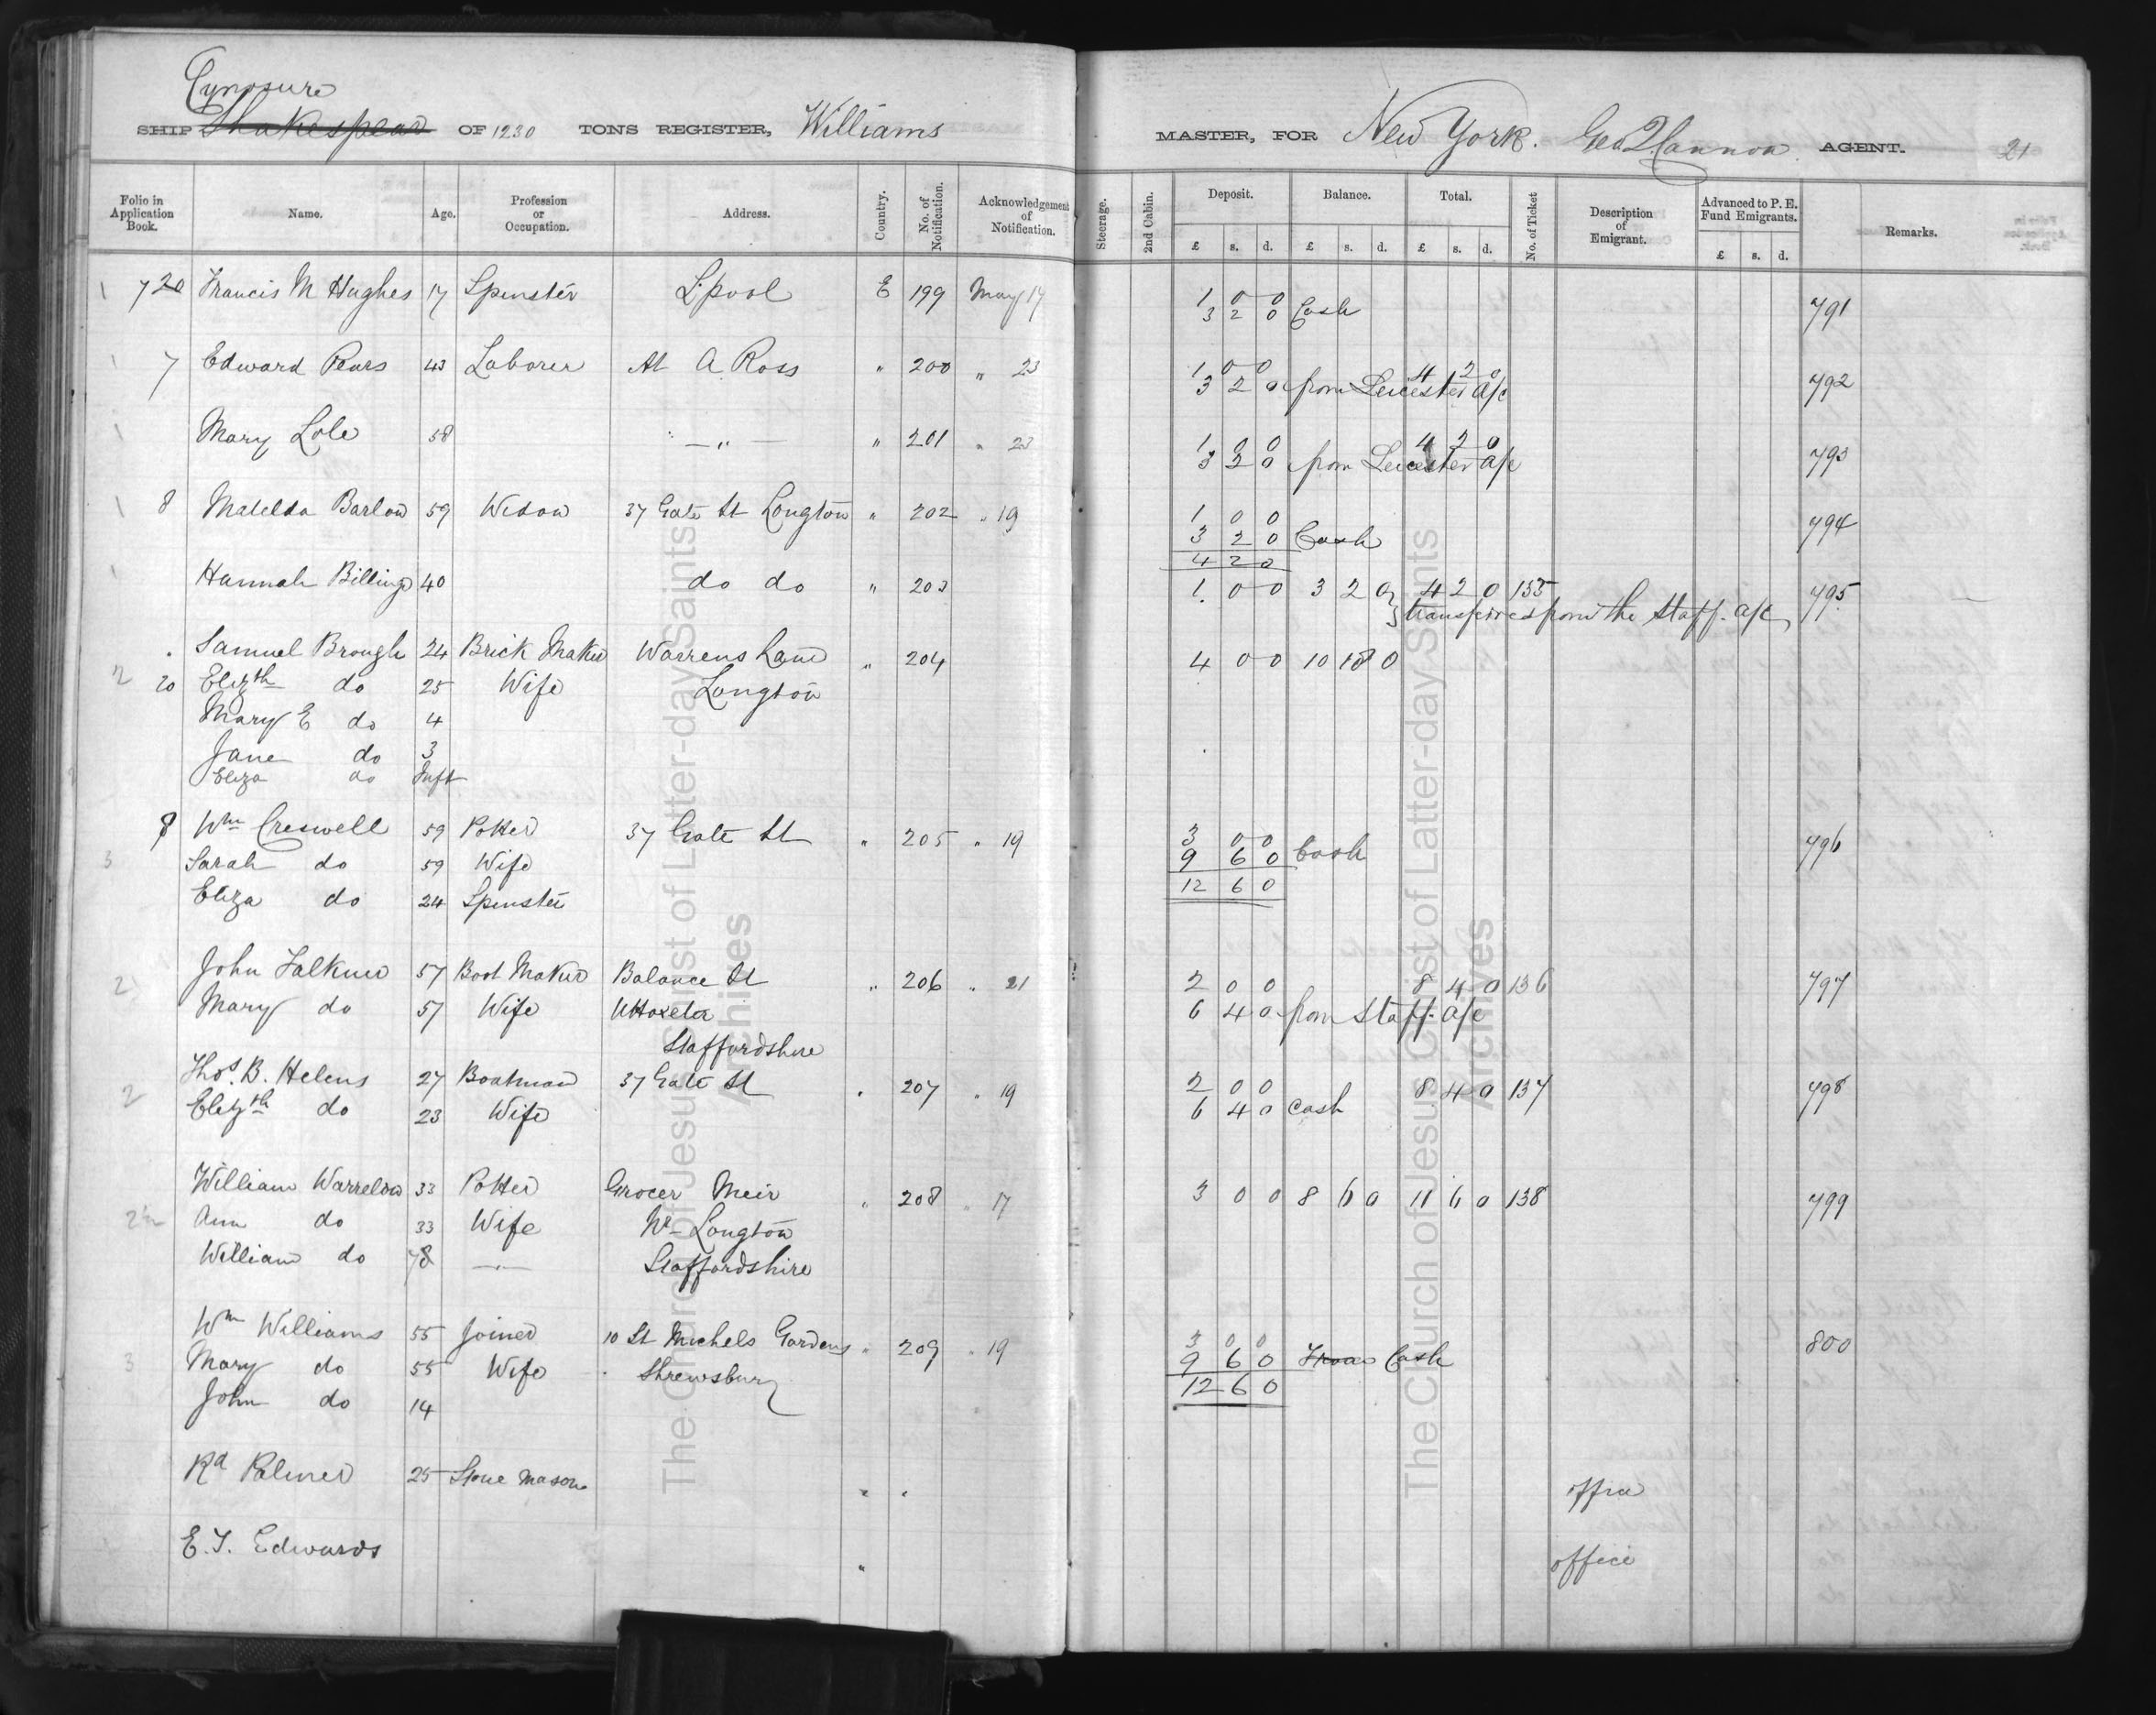 Cynosure
SHIP Shakespear OF 1230 TONS REGISTER, Williams MASTER, FOR New York. Geo Q Cannon AGENT. 21
Folio in Application Book. Name. Age. Profession or Occupation. Address. Country. No. of Notification. Acknowledgement of Notification. Steerage. 2nd Cabin. Deposit. £ s. d. Balance. £ s. d. Total. £ s. d. No. of Ticket Description of Emigrant. Advanced to P. E. Fund Emigrants. £ s. d. Remarks.
1 720 Francis M Hughes 17 Spinster L.pool E 199 May 17 1 0 0 791
3 2 0 Cash
1 7 Edward Pears 43 Laborer At A Ross " 200 " 23 1 0 0 4 2 0 792
3 2 0 from Leicester a/c
1 Mary Lole 58 — " — " 201 " 23 1 0 0 4 2 0 793
3 2 0 from Leicester a/c
1 8 Matelda Barlow 59 Widow 37 Gate St Longton " 202 " 19 1 0 0 794
3 2 0 Cash
4 2 0
1 Hannah Billings 40 do do " 203 1 0 0 3 2 0 4 2 0 135 795
transferred from the Staff. a/c
Samuel Brough 24 Brick Maker Warrens Lane " 204 4 0 0 10 18 0
2 20 Elizth do 25 Wife Longton
Mary E do 4
Jane do 3
Eliza do Inft
8 Wm Creswell 59 Potter 37 Gate St " 205 " 19 3 0 0 796
3 Sarah do 59 Wife 9 6 0 Cash
Eliza do 24 Spinster 12 6 0
2 John Falkner 57 Boot Maker Balance St " 206 " 21 2 0 0 8 4 0 136 797
Mary do 57 Wife Uttoxeter 6 4 0 from Staff. a/c
Staffordshire
2 Thos. B. Helens 27 Boatman 37 Gate St " 207 " 19 2 0 0 8 4 0 137 798
Elizth do 23 Wife 6 4 0 cash
William Warrelow 33 Potter Grocer Meir " 208 " 17 3 0 0 8 6 0 11 6 0 138 799
2½ Ann do 33 Wife Nr Longton
William do 78 — Staffordshire
Wm Williams 55 Joiner 10 St Michels Gardens " 209 " 19 3 0 0 800
3 Mary do 55 Wife Shrewsbury 9 6 0 From Cash
John do 14 12 6 0
Rd Palmer 25 Stone Mason " " office
E. T. Edwards " office
The Church of Jesus Christ of Latter-day Saints
Archives
The Church of Jesus Christ of Latter-day Saints
Archives